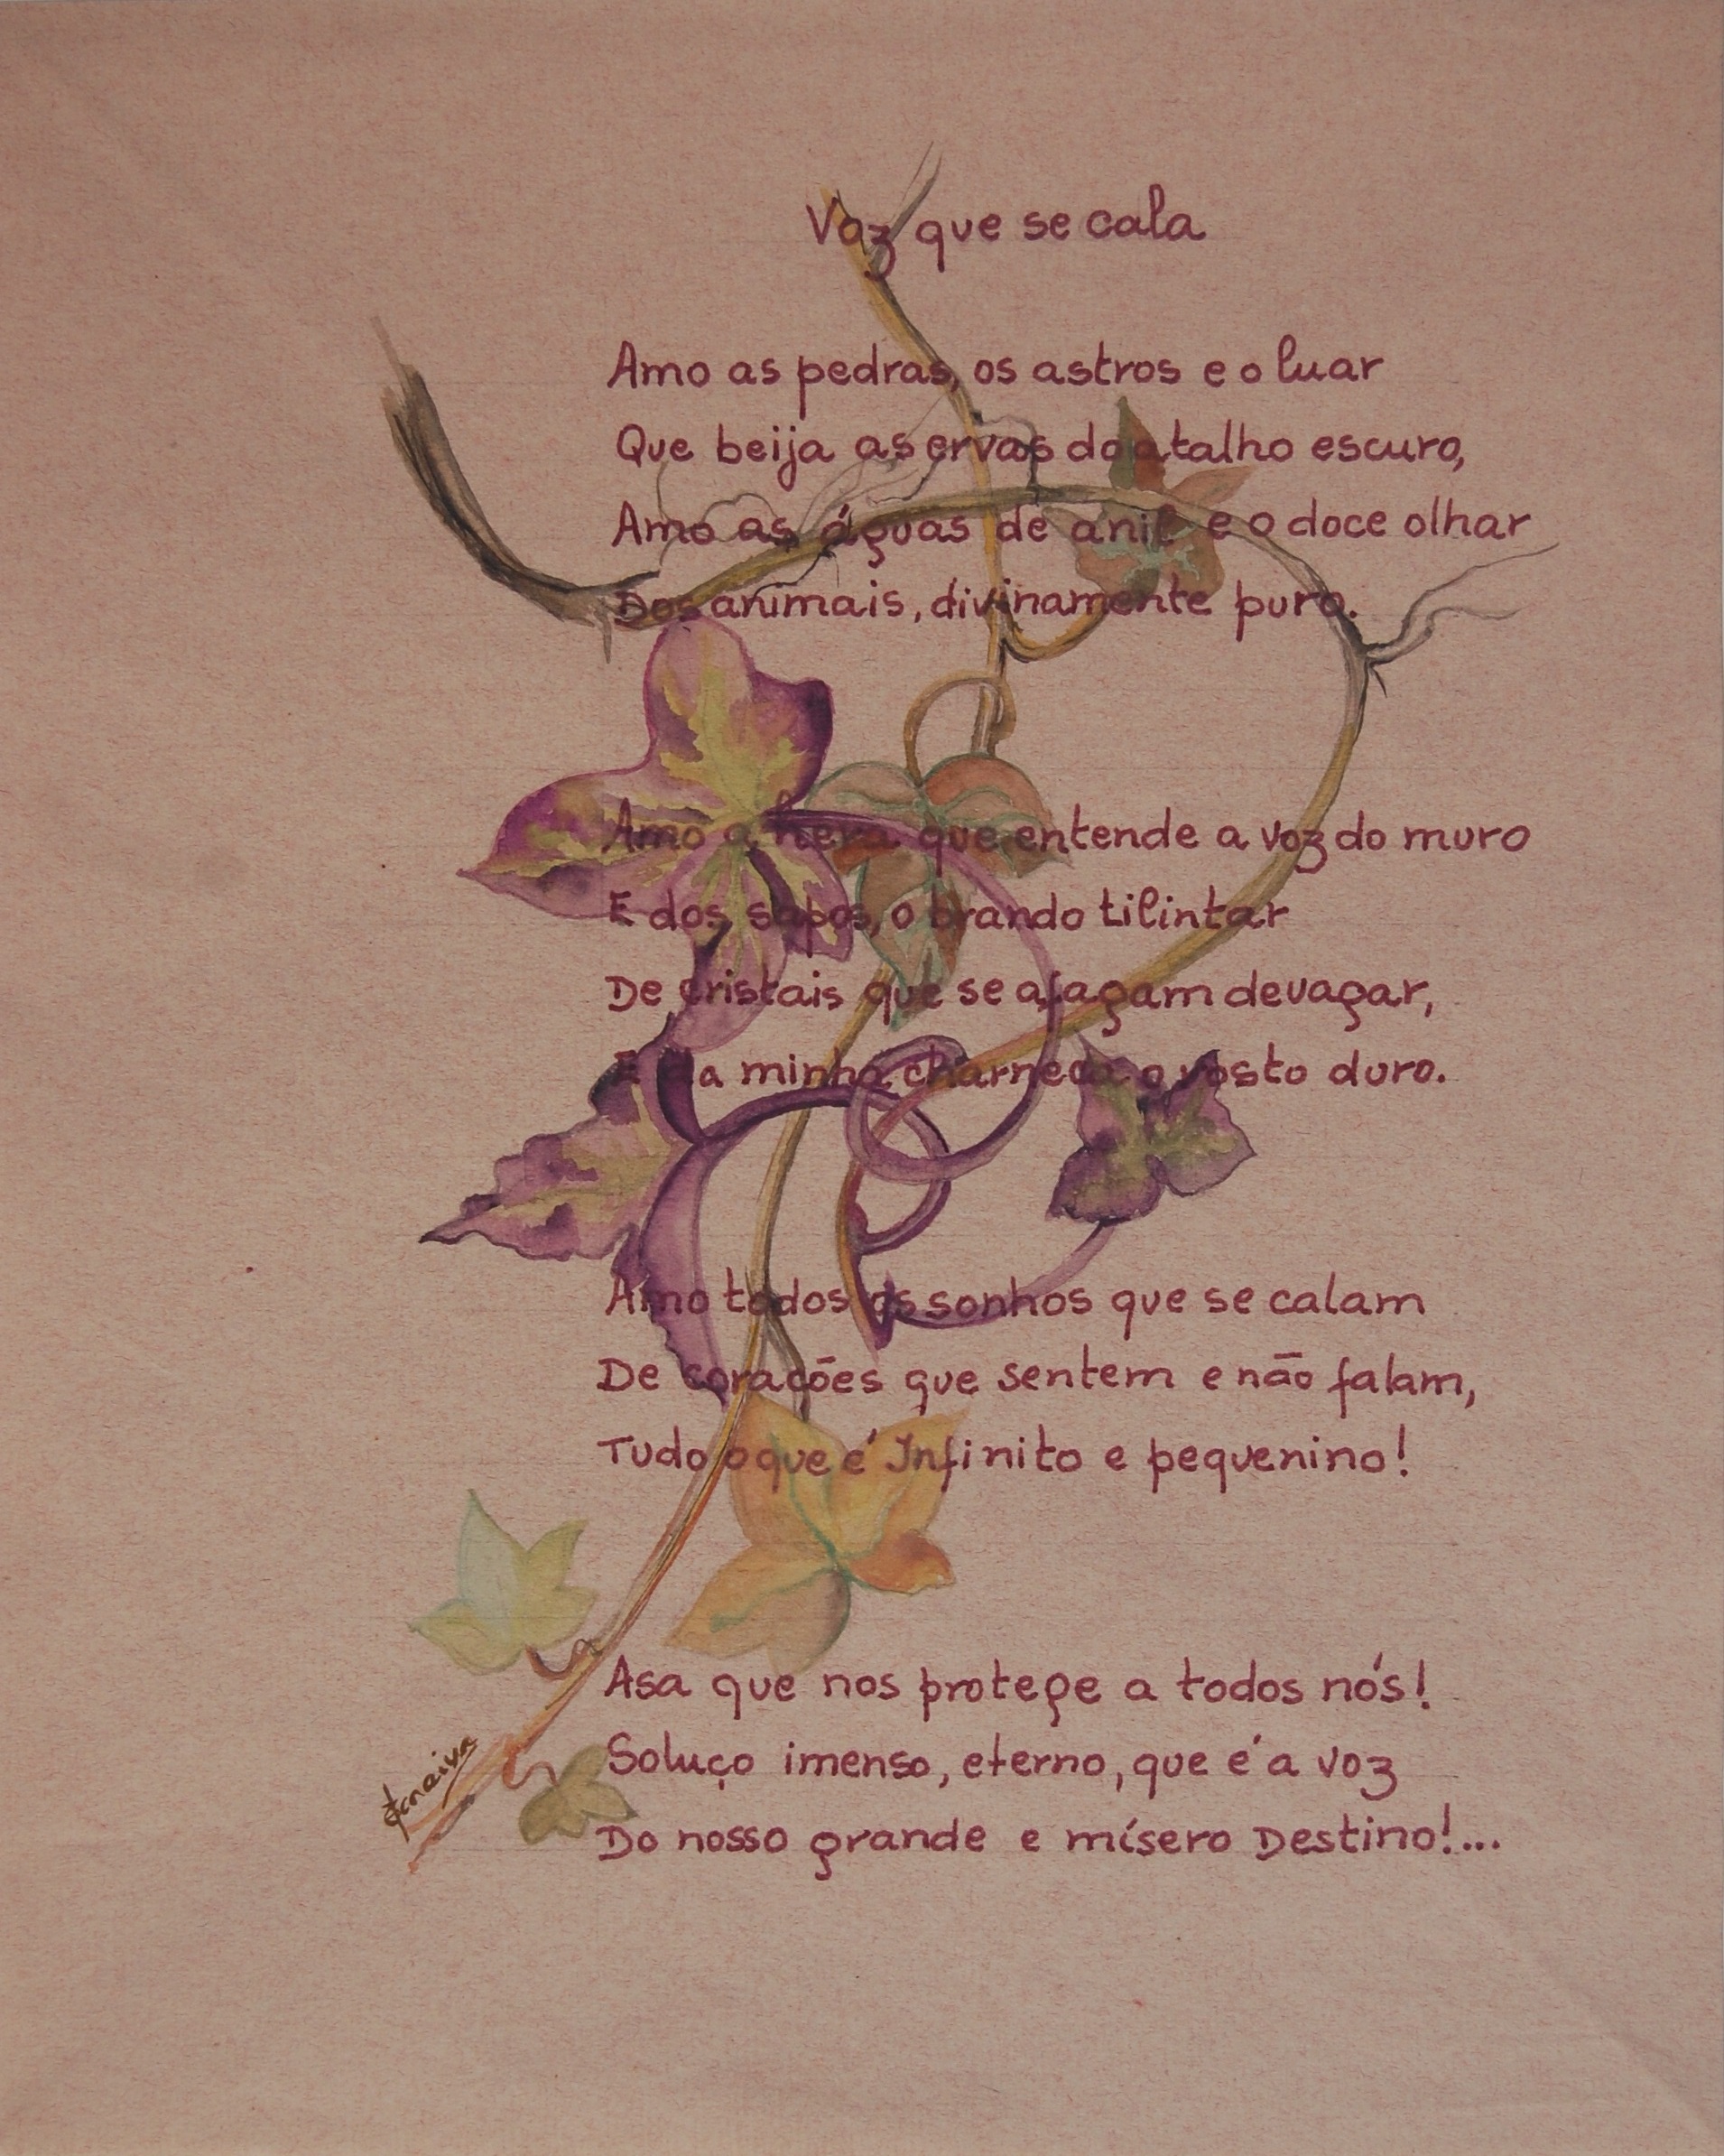 Voz que se cala
Amo as pedras, os astros e o luar
Que beija as ervas do atalho escuro,
Amo as águas de anil e o doce olhar
Dos animais, divinamente puro.
Amo a hera que entende a voz do muro
E dos sapos, o brando tilintar
De cristais que se afagam devagar,
E da minha charneca o rosto duro.
Amo todos os sonhos que se calam
De corações que sentem e não falam,
Tudo o que é Infinito e pequenino!
Asa que nos protege a todos nós!
Soluço imenso, eterno, que é a voz
Do nosso grande e mísero Destino!...